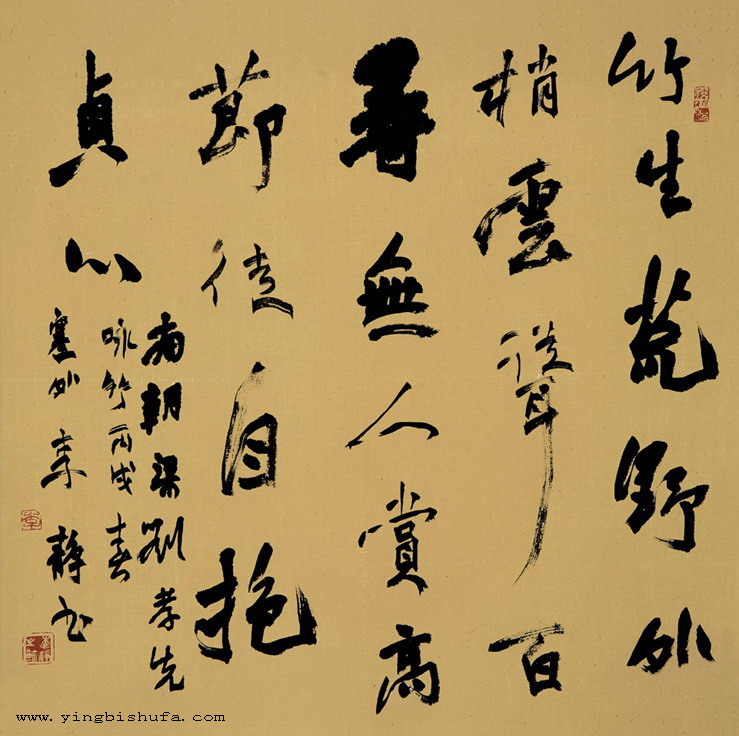 竹生荒野外
梢雲聳百
尋無人賞高
節徒自抱
貞心
南朝梁劉孝先
咏竹丙戌春
塞外李静书
www.yingbishufa.com